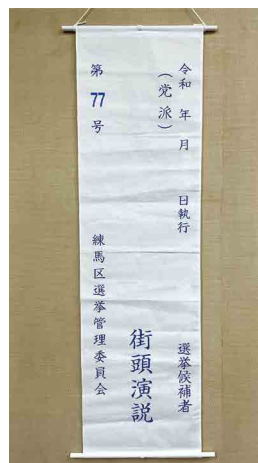 令和 年 月 日執行
（党派）
選挙候補者
街頭演説
第 77 号
練馬区選挙管理委員会